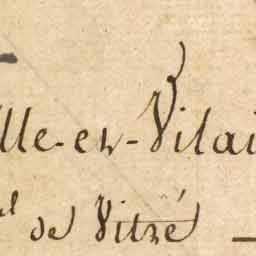 lle-en-Vilai
al de Vitré